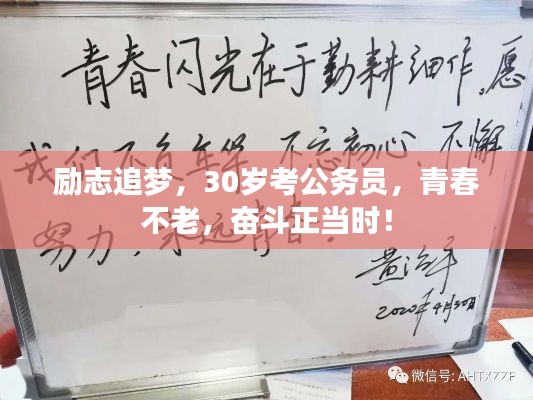 青春闪光在于勤耕细作。愿
我们不负年华、不忘初心、不懈
励志追梦，30岁考公务员，青春
不老，奋斗正当时！
努力，永远青春。
2020年4月30日
微信号: AHTXZZF